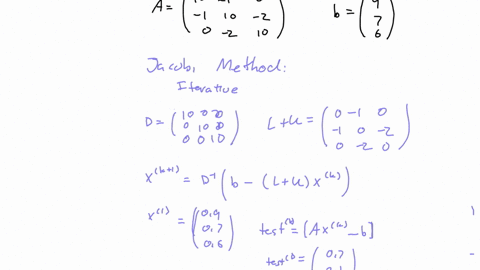 A = ( -1 10 -2 ; 0 -2 10 )   b = ( 9 ; 7 ; 6 )
Jacobi Method:
Iterative
D = ( 10 0 0 ; 0 10 0 ; 0 0 10 )   L+U = ( 0 -1 0 ; -1 0 -2 ; 0 -2 0 )
x^(k+1) = D^-1 ( b - (L+U) x^(k) )
x^(1) = ( 0,9 ; 0,7 ; 0,6 )   test^(k) = [ A x^(k) - b ]
test^(1) = ( 0,7